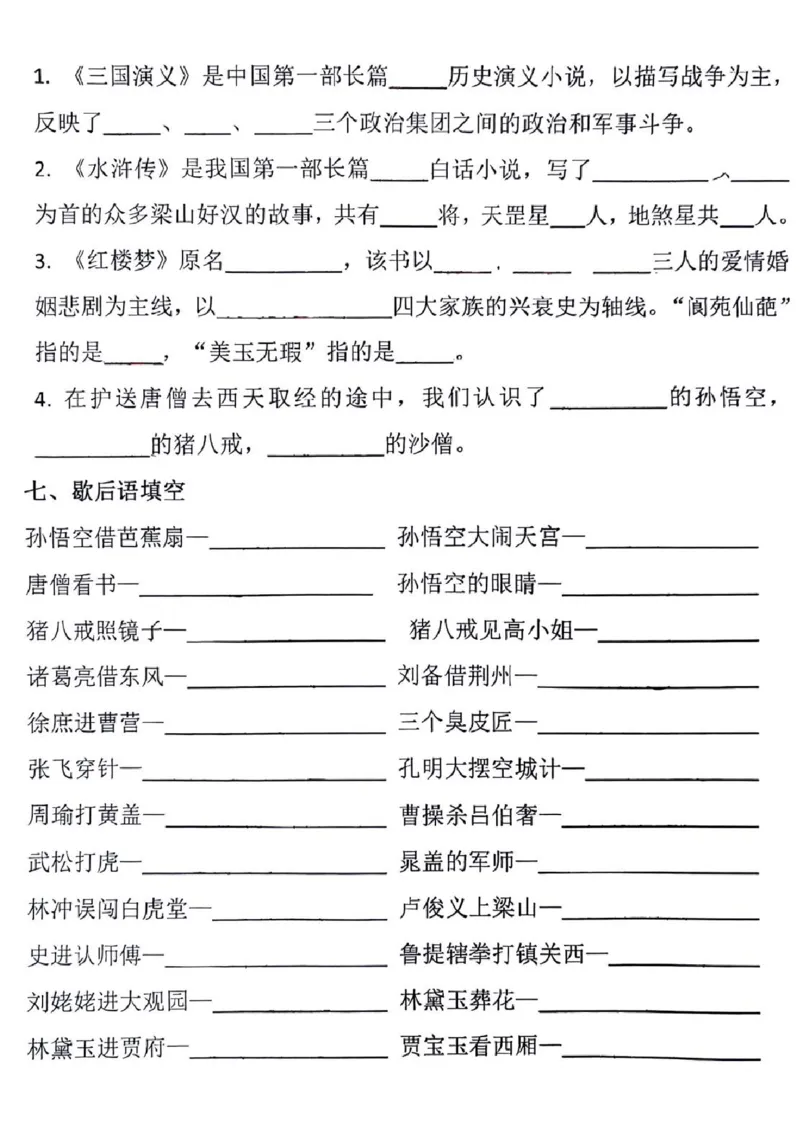 1. 《三国演义》是中国第一部长篇_____历史演义小说，以描写战争为主，
反映了_____、____、_____三个政治集团之间的政治和军事斗争。
2. 《水浒传》是我国第一部长篇_____白话小说，写了__________、_____
为首的众多梁山好汉的故事，共有_____将，天罡星___人，地煞星共___人。
3. 《红楼梦》原名__________，该书以_____、_____ _____三人的爱情婚
姻悲剧为主线，以_______________四大家族的兴衰史为轴线。“阆苑仙葩”
指的是_____，“美玉无瑕”指的是_____。
4. 在护送唐僧去西天取经的途中，我们认识了__________的孙悟空，
__________的猪八戒，__________的沙僧。
七、歇后语填空
孙悟空借芭蕉扇—_______________ 孙悟空大闹天宫—_______________
唐僧看书—____________________ 孙悟空的眼睛—_________________
猪八戒照镜子—_________________ 猪八戒见高小姐—______________
诸葛亮借东风—_________________ 刘备借荆州—___________________
徐庶进曹营—___________________ 三个臭皮匠—___________________
张飞穿针—_____________________ 孔明大摆空城计—_______________
周瑜打黄盖—___________________ 曹操杀吕伯奢—_________________
武松打虎—_____________________ 晁盖的军师—___________________
林冲误闯白虎堂—_______________ 卢俊义上梁山—_________________
史进认师傅—___________________ 鲁提辖拳打镇关西—_____________
刘姥姥进大观园—_______________ 林黛玉葬花—___________________
林黛玉进贾府—_________________ 贾宝玉看西厢—_________________